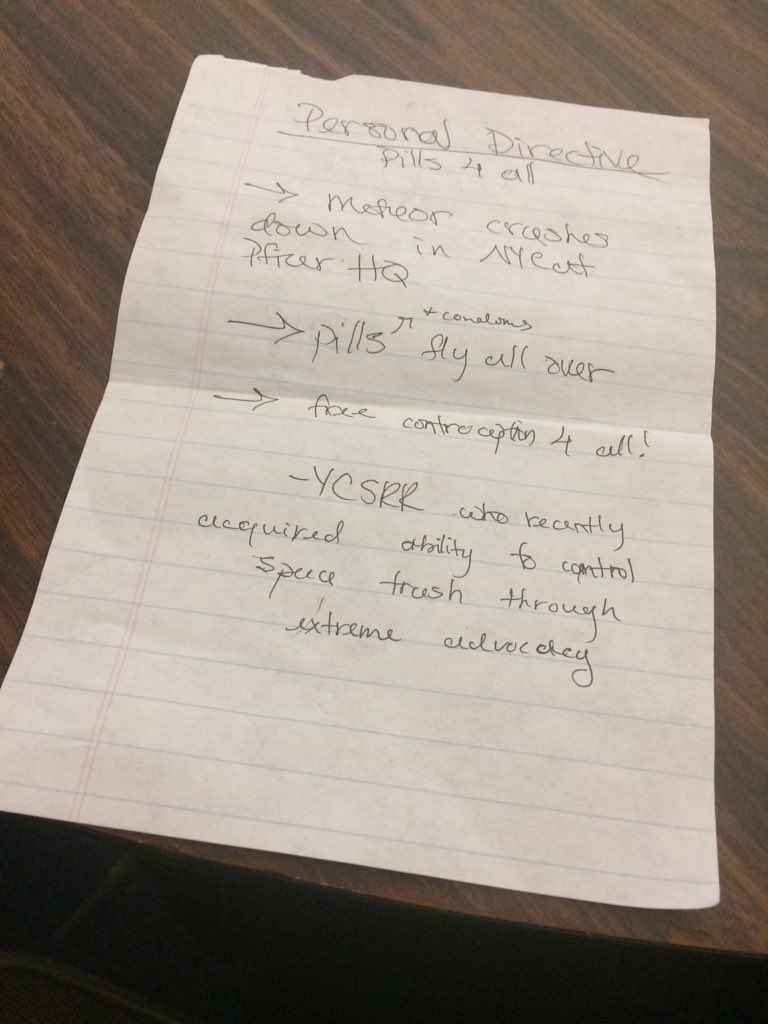 Personal Directive
Pills 4 all
→ meteor crashes
down in NYC at
Pfizer HQ
→ pills ↗ + condoms fly all over
→ free contraception 4 all!
-YCSRR who recently
acquired ability to control
space trash through
extreme advocacy